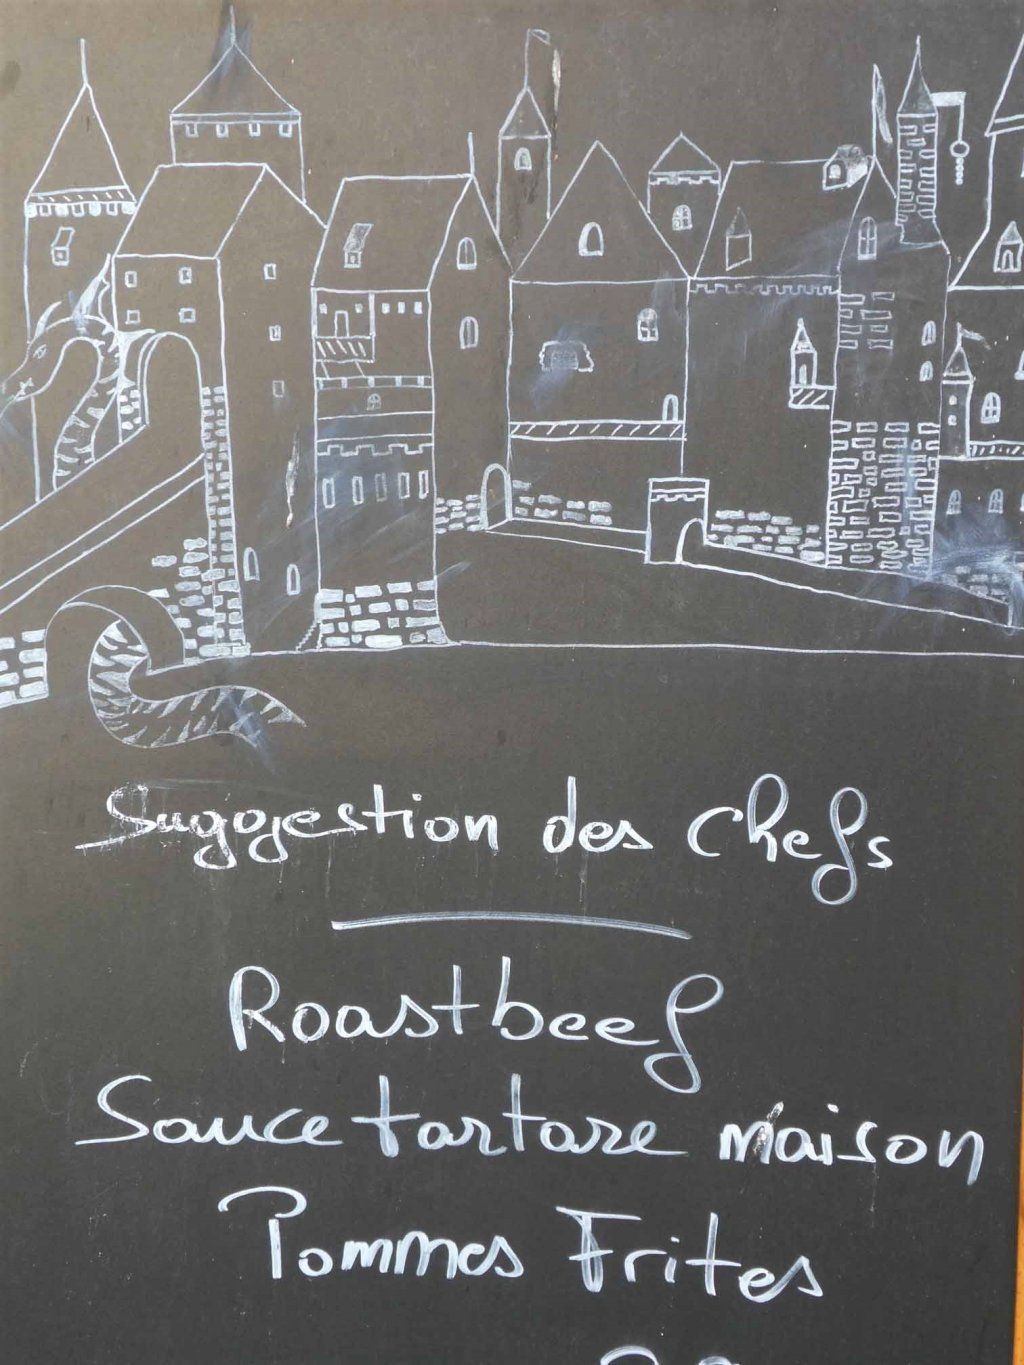 Suggestion des Chefs
Roastbeef
Sauce tartare maison
Pommes Frites